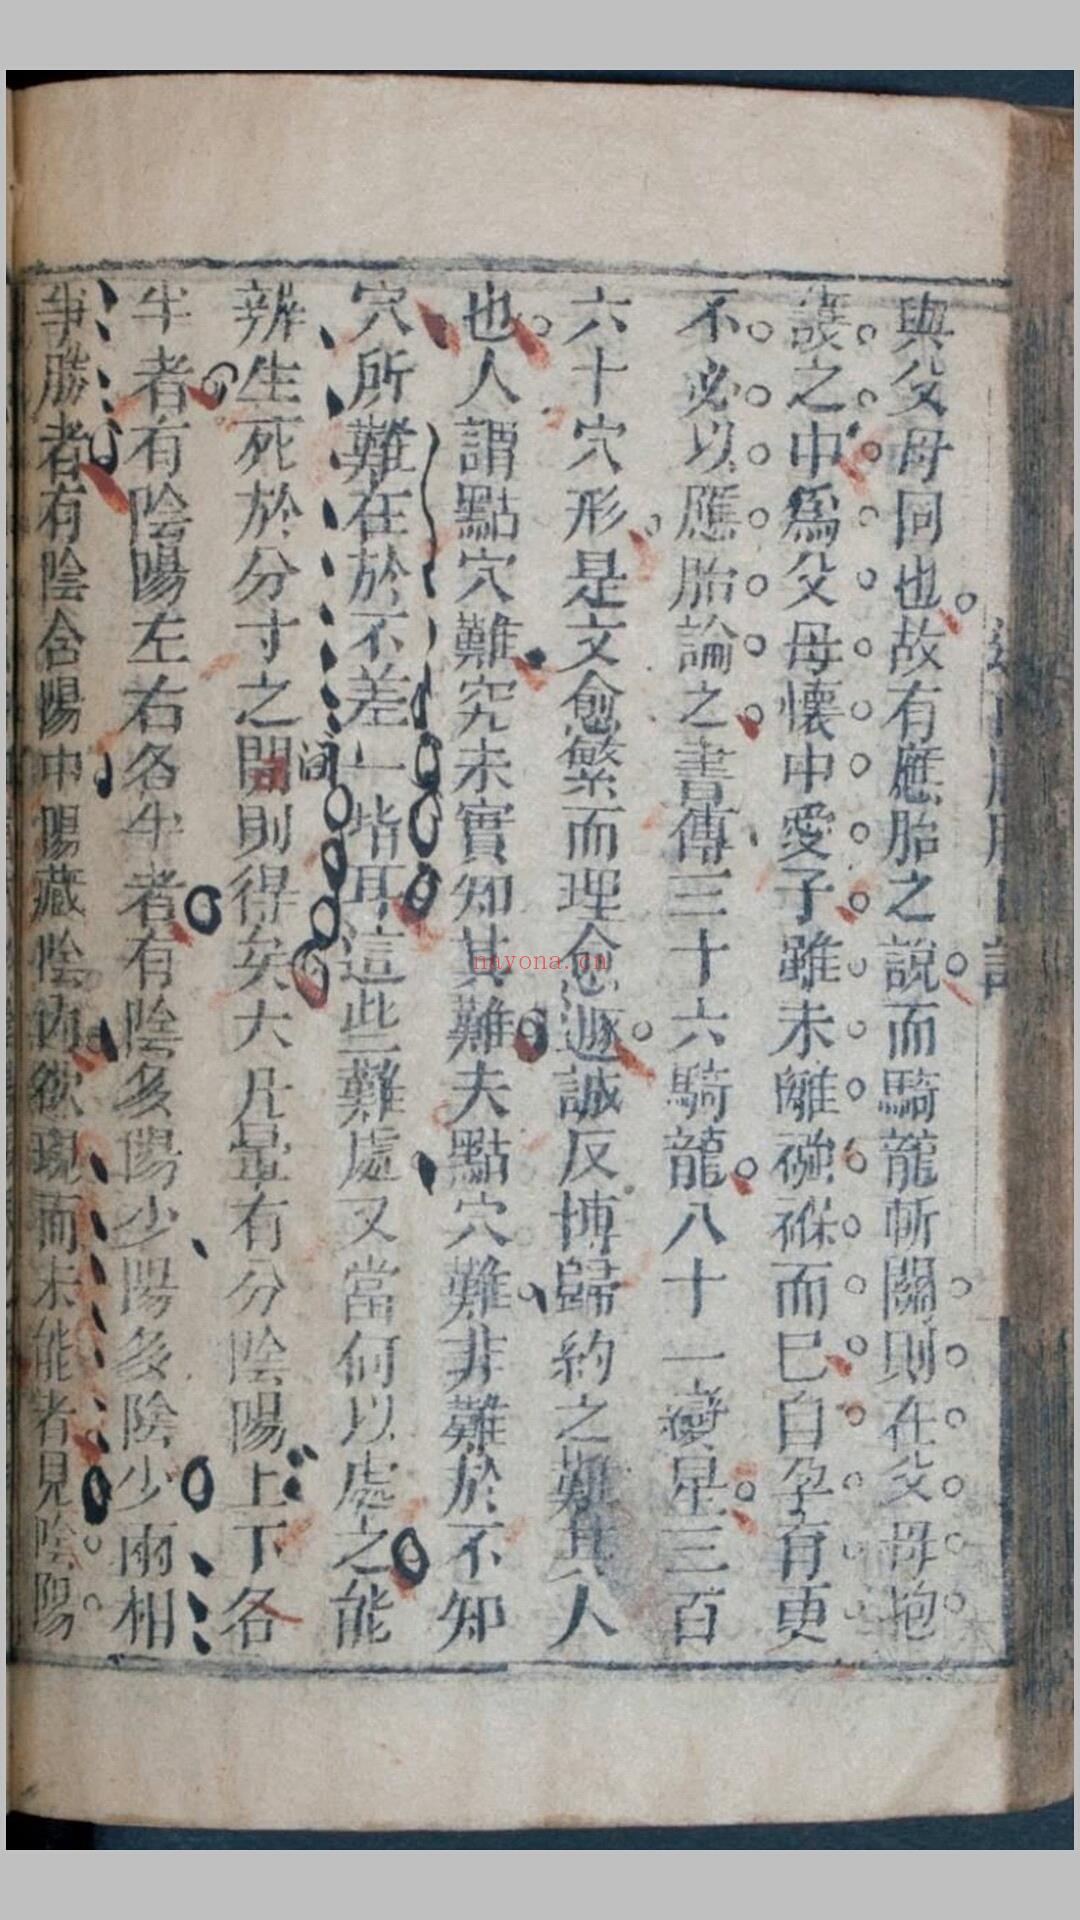 與父母同也故有應胎之說而騎龍斬關則在父母抱
護之中爲父母懷中愛子雖未離襁褓而已自孕育更
不必以應胎論之書傳三十六騎龍八十一變星三百
六十穴形是文愈繁而理愈遯誠反博歸約之難其人
也人謂點穴難究未實知其難夫點穴難非難於不知
穴所難在於不差一眥耳這些難處又當何以處之能
辨生死於分寸之間則得矣大凡暈有分陰陽上下各
半者有陰陽左右各半者有陰多陽少陽多陰少兩相
爭勝者有陰含陽中陽藏陰內欲現而未能者見陰陽
间
nayona.cn